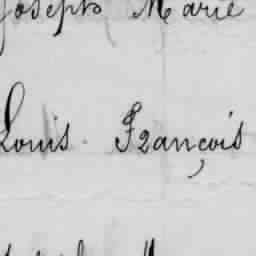 Joseph Marie
Louis François